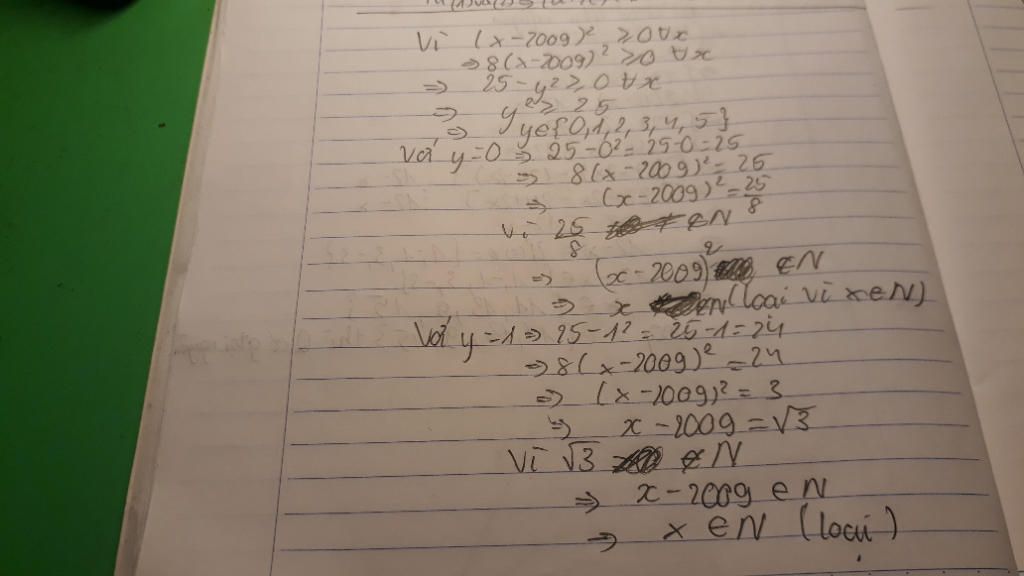 Vì (x-2009)² ≥0 ∀x
⇒ 8(x-2009)² ≥0 ∀x
⇒ 25-y² ≥ 0 ∀x
⇒ y² ≥ 25
⇒ y∈{0,1,2,3,4,5}
Với y=0 ⇒ 25-0² = 25-0=25
⇒ 8(x-2009)² = 25
⇒ (x-2009)² = 25/8
Vì 25/8 ∉N
⇒ (x-2009)² ∉N
⇒ x ∉N (loại vì x∈N)
Với y=1 ⇒ 25-1² = 25-1=24
⇒ 8(x-2009)² = 24
⇒ (x-2009)² = 3
⇒ x-2009 = √3
Vì √3 ∉N
⇒ x-2009 ∈N
⇒ x ∈N (loại)